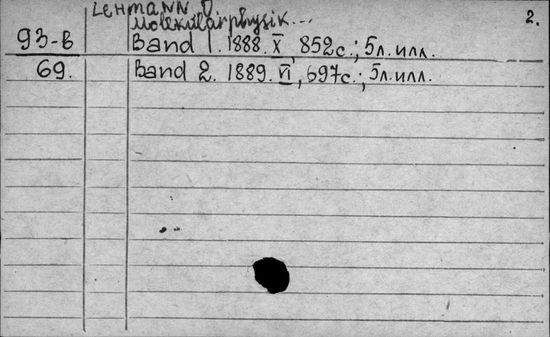 Lehmann O.
Molekularphysik...
2.
93-в
Band 1. 1888. X, 852с.; 5л.илл.
69.
Band 2. 1889. VI, 697с.; 5л.илл.